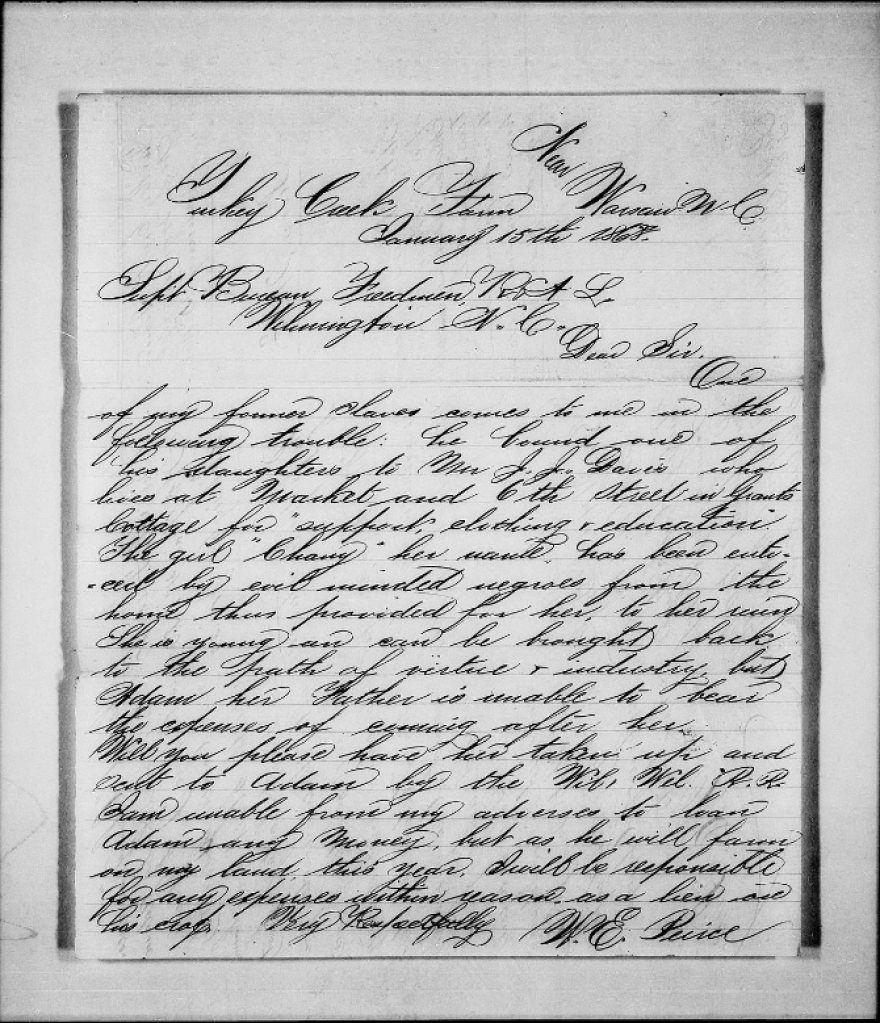 Near
Turkey Creek Farm Warsaw N. C.
January 15th 1868.
Supt. Bureau Freedmen, R & A L.
Wilmington N. C.
Dear Sir.
One
of my former slaves comes to me in the
following trouble: he bound one of
his daughters to Mr J. J. Davis who
lives at Market and 6th Street in Grants
Cottage for "support, clothing & education"
The girl "Chany" her name, has been enti-
-ced by evil minded negroes from the
home thus provided for her, to her ruin
She is young an can be brought back
to the path of virtue & industry, but
Adam her Father is unable to bear
the expenses of coming after her.
Will you please have her taken up and
sent to Adam by the Wil. Wel. R. R.
I am unable from my adverses to loan
Adam any Money, but as he will farm
on my land this year, I will be responsible
for any expenses within reason as a lien on
his crop. Very Respectfully W. E. Peirce